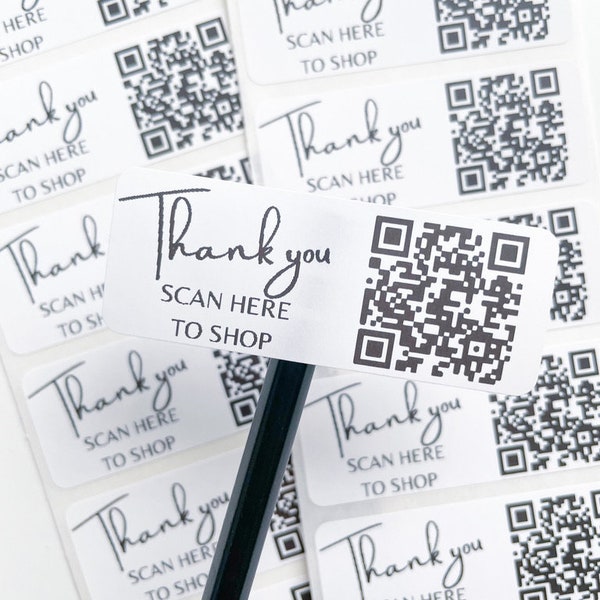 Thank you
SCAN HERE
TO SHOP
SCAN HERE
TO SHOP
Thank you
SCAN HERE
TO SHOP
Thank you
SCAN HERE
TO SHOP
Thank you
SCAN HERE
Thank you
SCAN HERE
TO SHOP
Thank
SCAN H
TO SHOP
Thank you
SCAN HERE
TO SHOP
Thank you
SCAN HERE
TO SHOP
Thank you
SCAN HERE
TO SHOP
Thank you
SCAN HERE